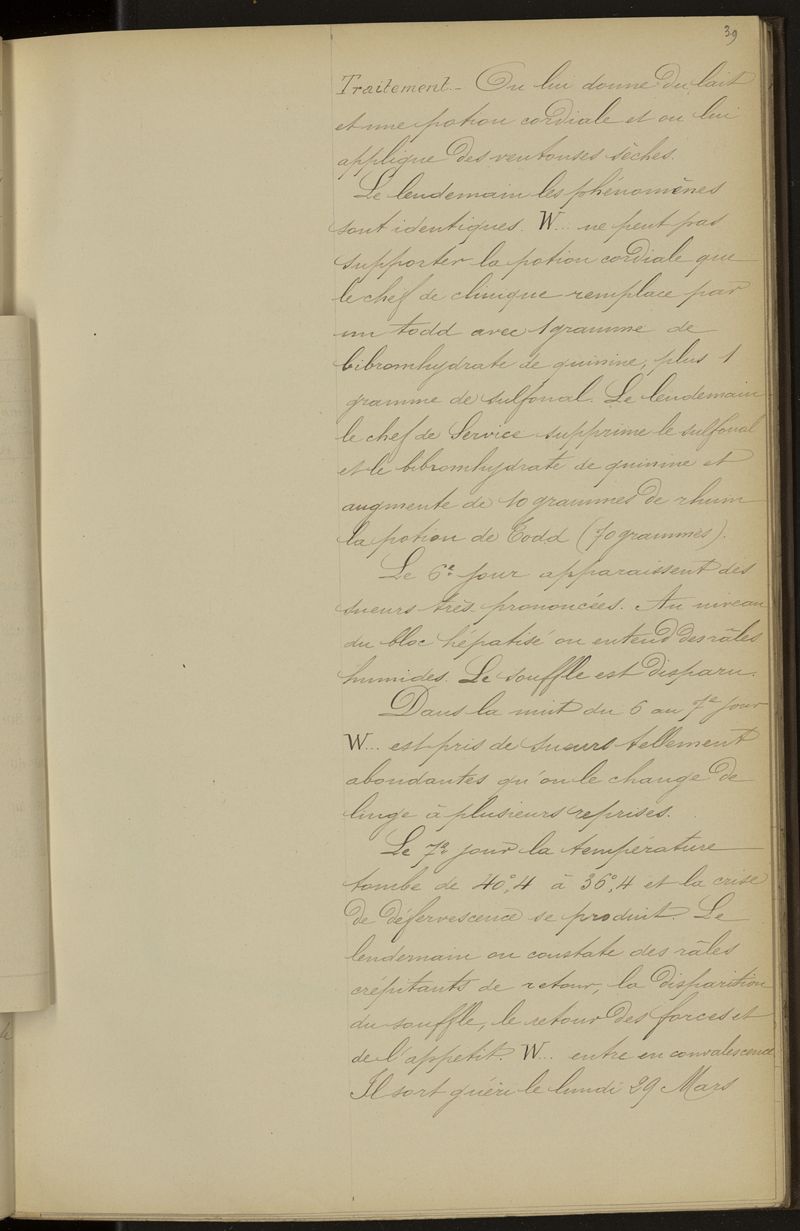 39
Traitement. - On lui donne du lait
et une potion cordiale et on lui
applique des ventouses sèches.
Le lendemain les phénomènes
sont identiques. W... ne peut pas
supporter la potion cordiale que
le chef de clinique remplace par
un todd avec 1 gramme de
bibromhydrate de quinine, plus 1
gramme de sulfonal. Le lendemain
le chef de Service supprime le sulfonal
et le bibromhydrate de quinine et
augmente de 10 grammes de rhum
la potion de Todd (70 grammes).
Le 6e jour apparaissent des
sueurs très prononcées. Au niveau
du bloc hépatisé on entend des râles
humides. Le souffle est disparu.
Dans la nuit du 6 au 7e jour
W... est pris de sueurs tellement
abondantes qu'on le change de
linge à plusieurs reprises.
Le 7e jour la température
tombe de 40°,4 à 36°,4 et la crise
de défervescence se produit. Le
lendemain on constate des râles
crépitants de retour, la disparition
du souffle, le retour des forces et
de l'appetit. W... entre en convalescence
Il sort guéri le lundi 29 Mars